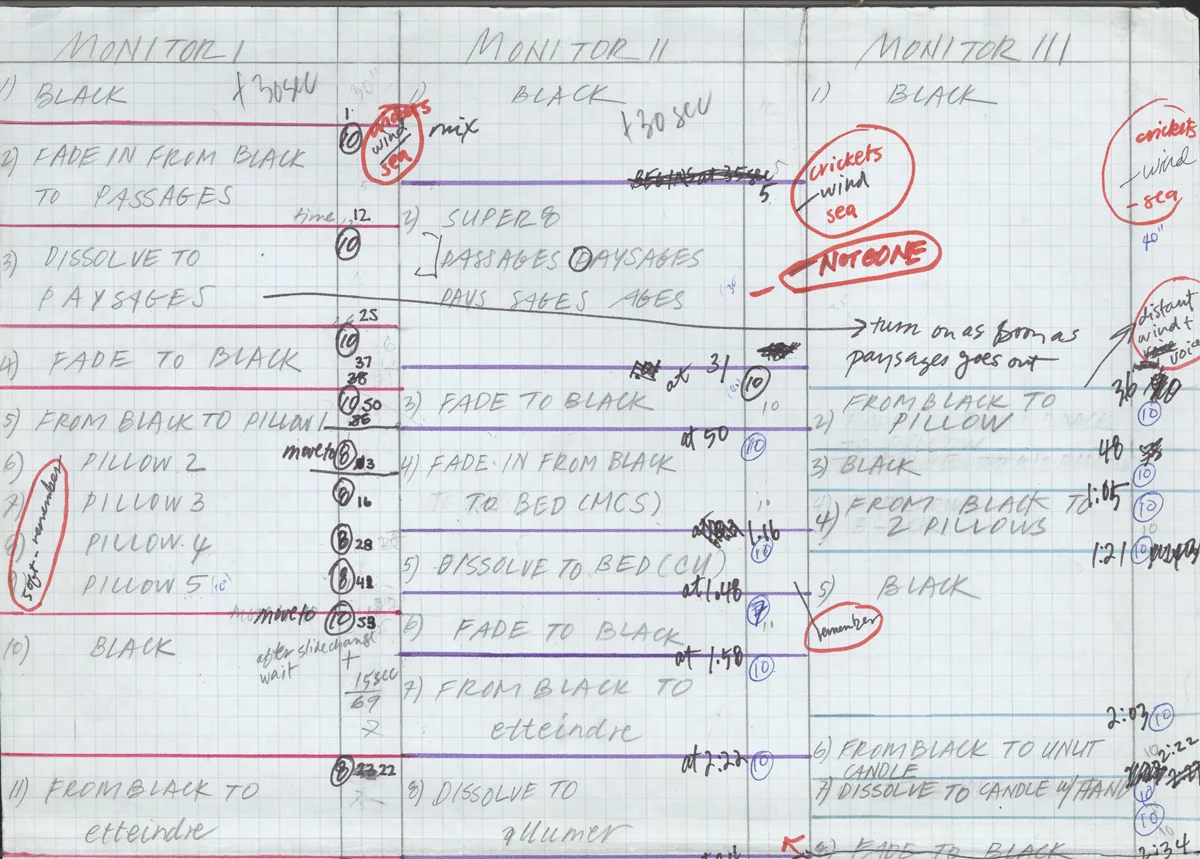 MONITOR I
1) BLACK +30 sec
1
10
wind
sea
mix
2) FADE IN FROM BLACK
TO PASSAGES
time 12
10
3) DISSOLVE TO
PAYSAGES
25
10
4) FADE TO BLACK
37
38
10 50
5) FROM BLACK TO PILLOW 1
move to 8
6) PILLOW 2
7) PILLOW 3
8 16
PILLOW 4
8 28
PILLOW 5 (10)
8 41
soft - remember
move to 10 53
10) BLACK
after slide change
wait
+
15 sec
69
8 22
11) FROM BLACK TO
etteindre
MONITOR II
1) BLACK
+30 sec
BEGINS at 35 sec
5
2) SUPER 8
PASSAGES PAYSAGES
PAYS SAGES AGES
at 31
10
3) FADE TO BLACK
10
at 50
10
4) FADE IN FROM BLACK
TO BED (MCS)
10
at 1.16
10
5) DISSOLVE TO BED (CU)
at 1.48
6) FADE TO BLACK
at 1.58
10
7) FROM BLACK TO
etteindre
at 2.22
10
8) DISSOLVE TO
allumer
MONITOR III
1) BLACK
crickets
- wind
sea
- NOT GONE
crickets
- wind
- sea
40"
turn on as soon as
paysages goes out
distant
wind +
voice
36
FROM BLACK TO
2) PILLOW
10
48
3) BLACK
10
1:05
4) FROM BLACK TO
2 PILLOWS
10
10
1:21 10
5) BLACK
remember
2:03 10
6) FROM BLACK TO UNLIT
CANDLE
10
2:22
7) DISSOLVE TO CANDLE W/HAND
10
10
10
8) FADE TO BLACK
2:34